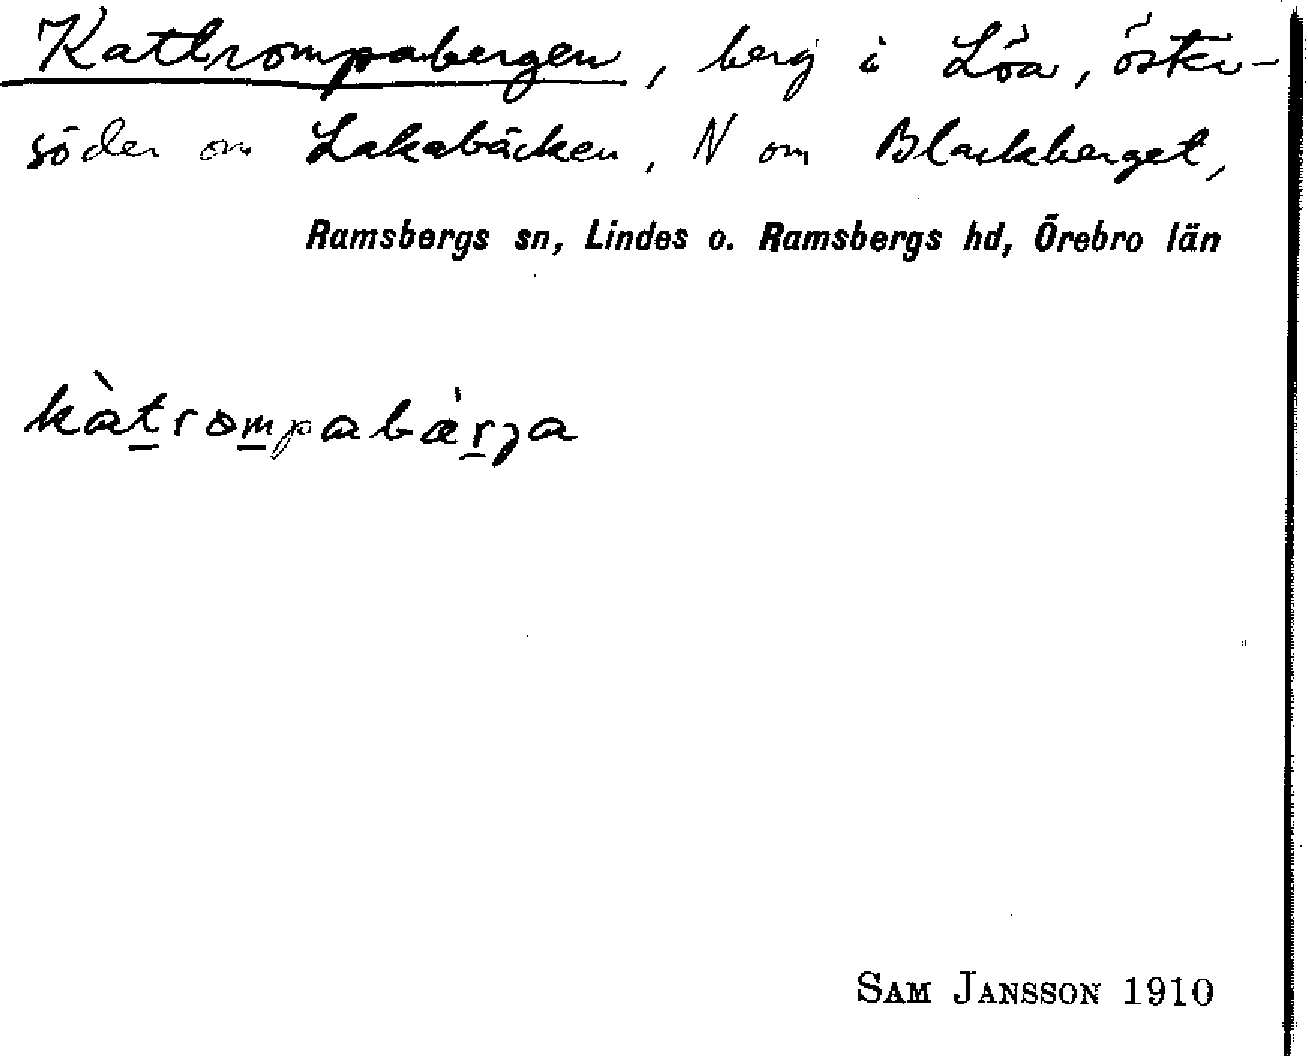 Kattrompabergen, berg i Löa, öster-
söder om Lakabäcken, N om Blackberget,
Ramsbergs sn, Lindes o. Ramsbergs hd, Örebro län
kàtrompabærja
SAM JANSSON 1910